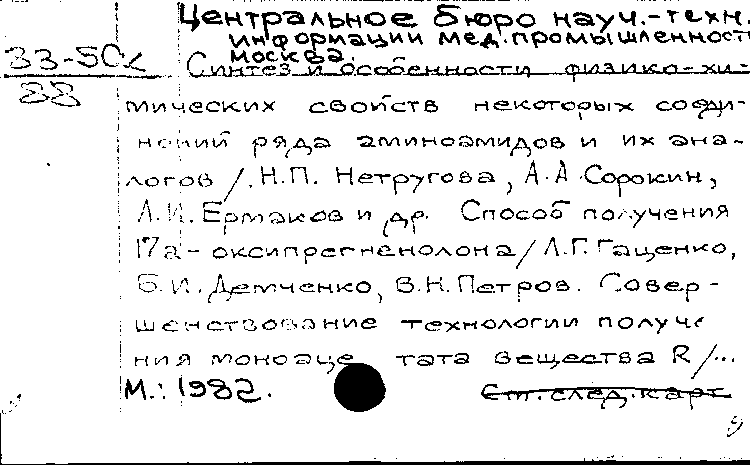 Центральное бюро науч.-техн.
информации мед.промышленност
Москва.
33-50
88
Синтез и особенности физико-хи-
мических свойств некоторых соеди-
нений ряда аминоамидов и их ана-
логов /. Н.П. Нетругова, А.А.Сорокин,
Л.И. Ермаков и др. Способ получения
17а-оксипрегненолона/Л.Г.Гаценко,
Б.И. Демченко, В.Н.Петров. Совер-
шенствование технологии получе
ния моноаце тата вещества R/...
М.: 1982.
См.след.карт.